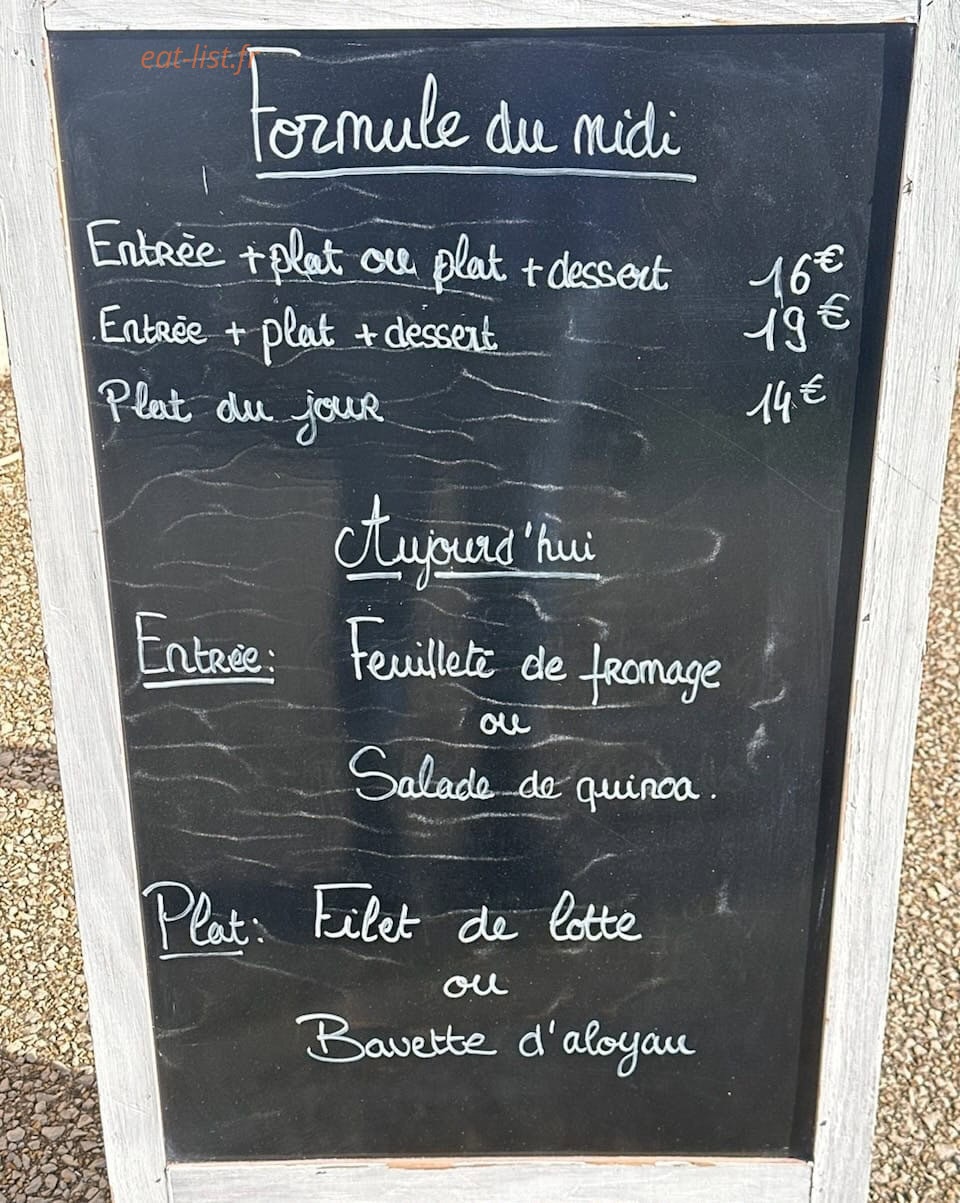 eat-list.fr
Formule du midi
Entrée + plat ou plat + dessert 16€
Entrée + plat + dessert 19€
Plat du jour 14€
Aujourd'hui
Entrée: Feuilleté de fromage
ou
Salade de quinoa.
Plat: Filet de lotte
ou
Bavette d'aloyau